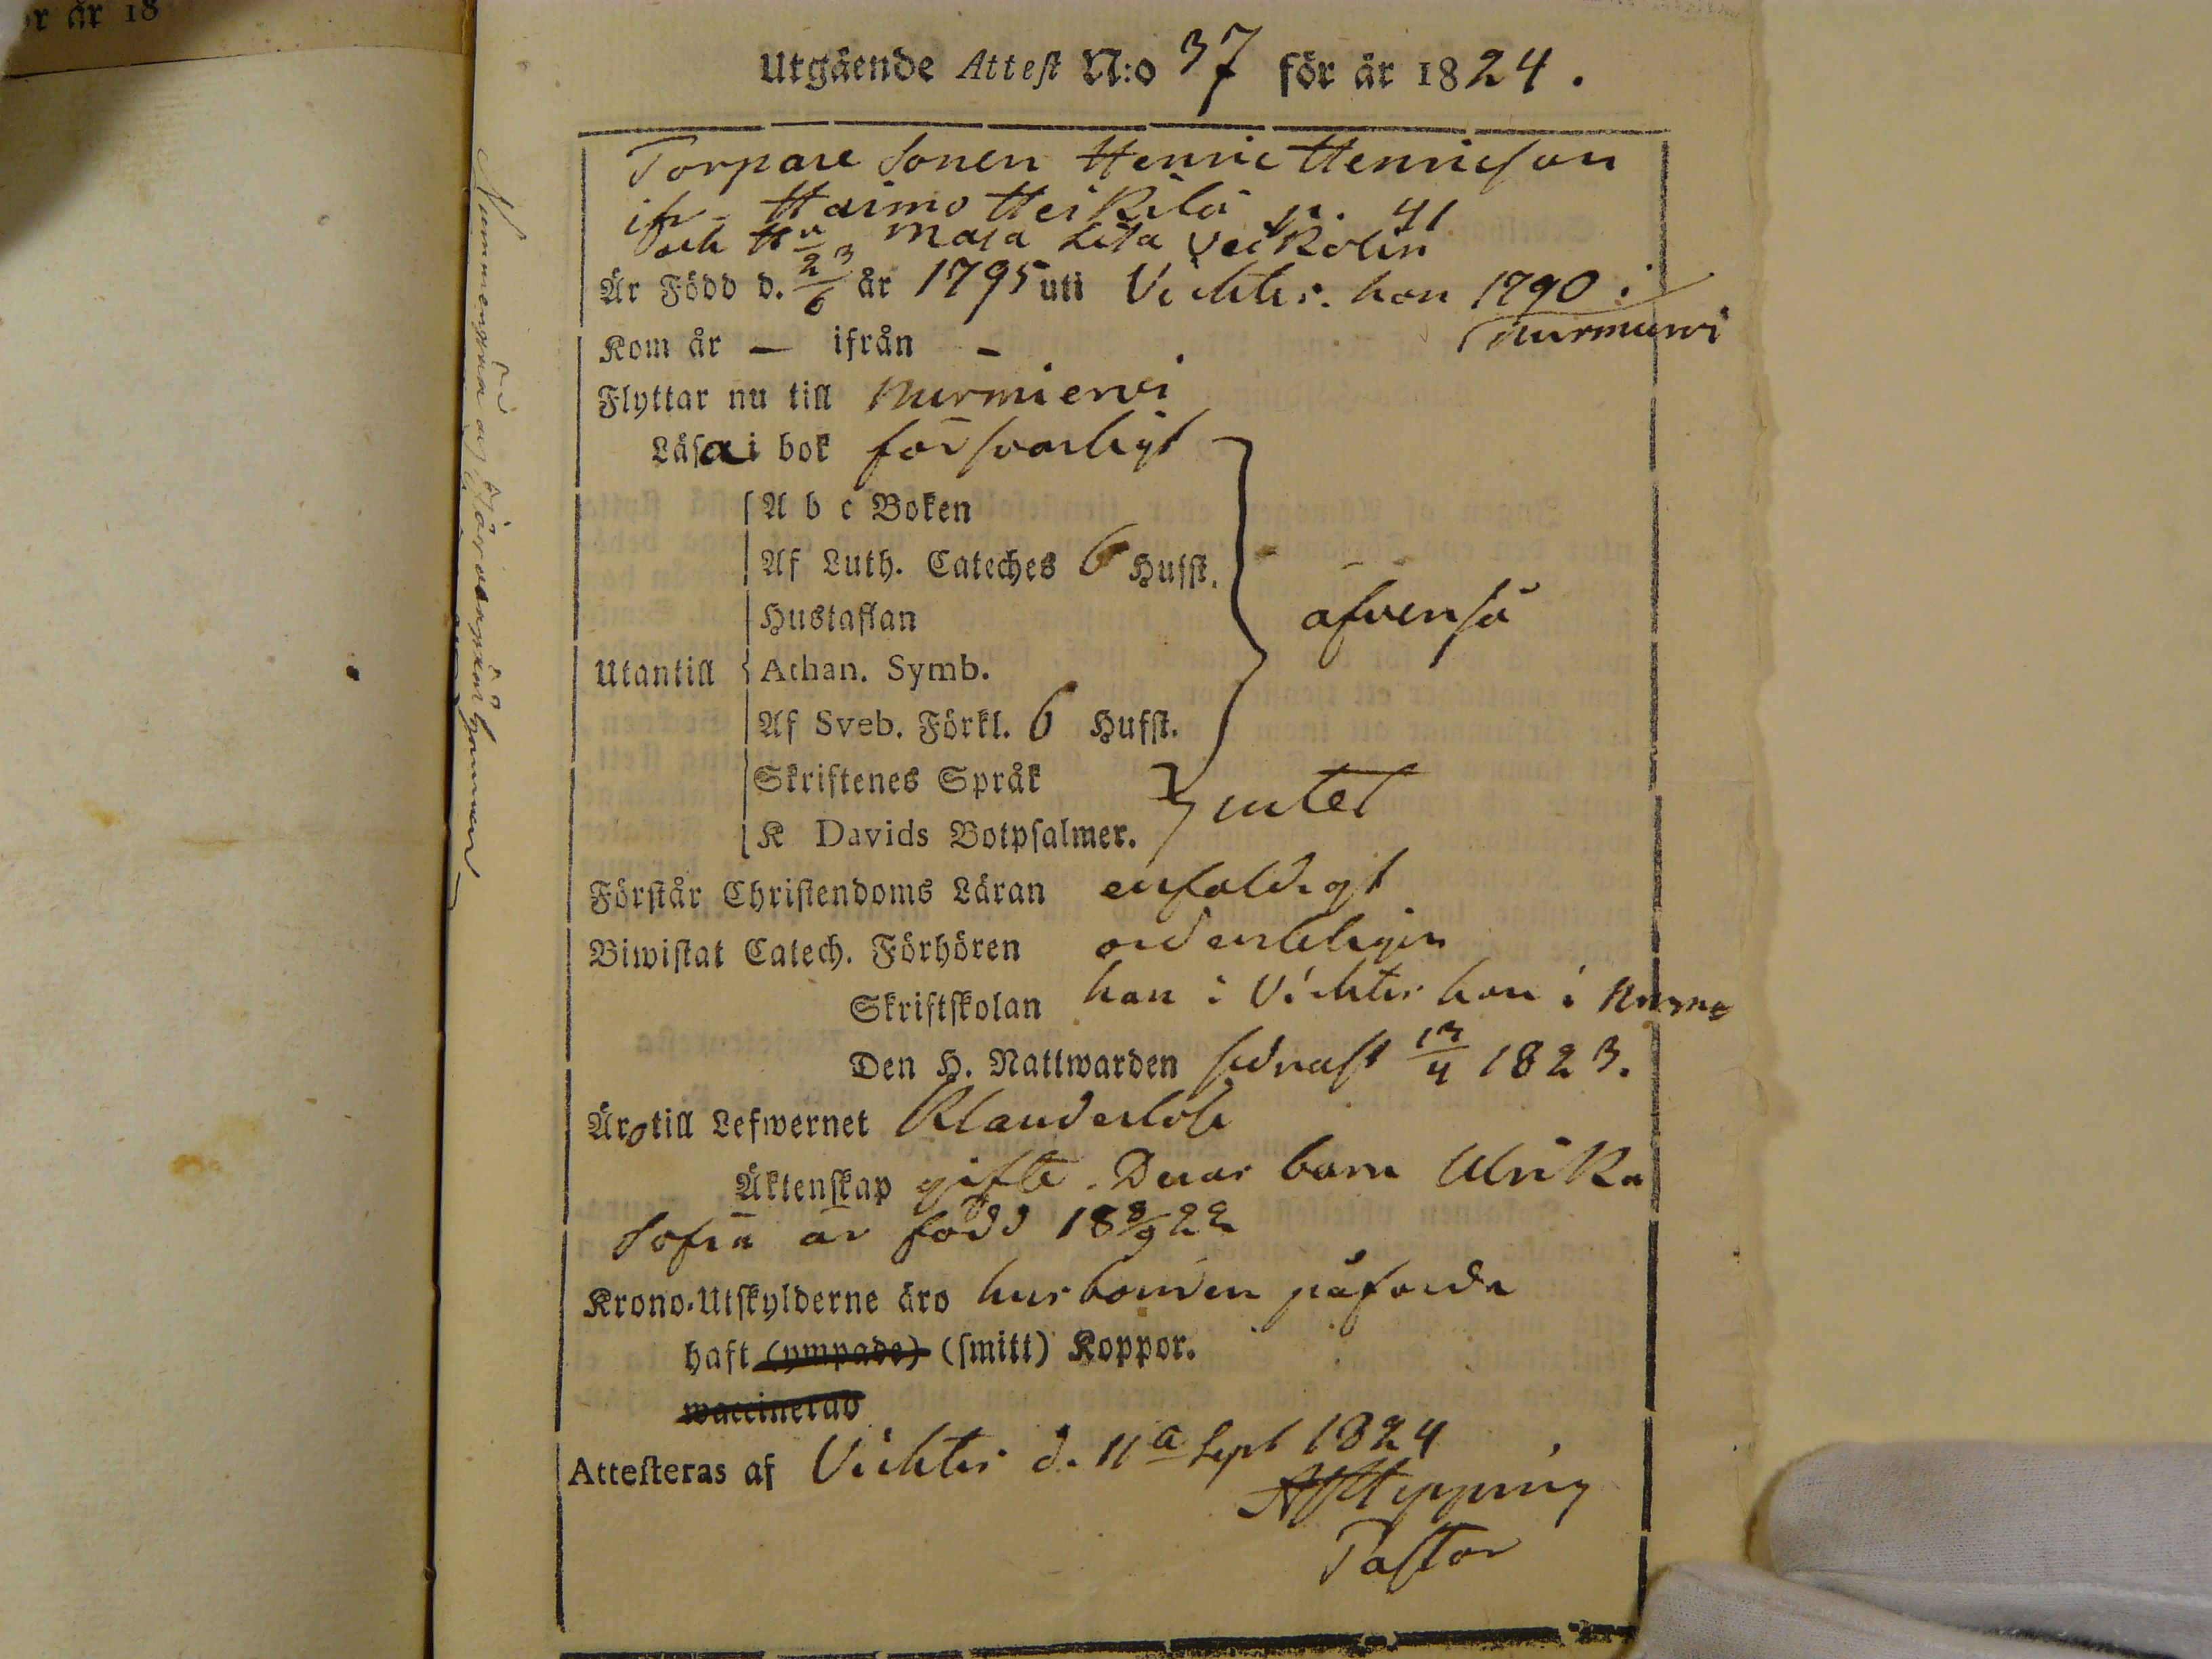 r år 18
Utgående Attest N:o 37 för år 1824.
Torpare Sonen Henric Henricson
ifr. Haimo Heikilä p. 41
och H:u Maja Lisa Veikolin
Är Född d. 23/6 år 1795 uti Vichtis. hon 1790 i
Nurmijervi
Kom år — ifrån –
Flyttar nu till Nurmiervi
Läsa i bok försvarligt
A b c Boken
Af Luth. Cateches 6 Hufst.
Hustaflan
äfvenså
Utantill
Athan. Symb.
Af Sveb. Förkl. 6 Hufst.
Skriftenes Språk
intet
K Davids Botpsalmer.
Förstår Christendoms Läran enfaldigt
Biwistat Catech. Förhören ordentligen
Skriftskolan han i Vichtis hon i Nurme
Den H. Nattwarden sednast 13/4 1823.
Äro till Lefwernet Klanderlöse
Äktenskap gifte. Deras barn Ulrika
Sofia är född 18 8/9 22
Krono-Utskylderne äro husbonden påförde
haft (ympade) (smitt) Koppor.
waccinerad
Attesteras af Vichtis d. 11a Sept 1824
Pastor